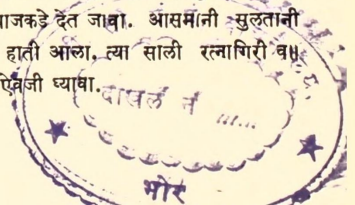 ाजकडे देत जावा. आसमानी सुलतानी
हाती आला. त्या साली रत्नागिरी व॥
ऐवजी घ्यावा.
दाखल नं ......
भोर